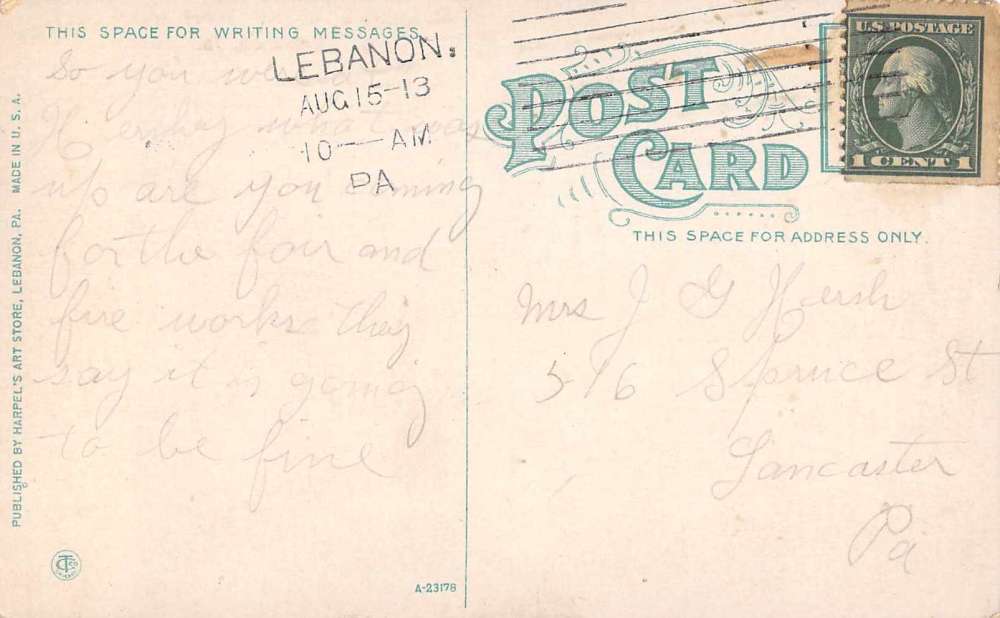 THIS SPACE FOR WRITING MESSAGES
LEBANON.
AUG 15-13
10 — AM
PA
So you
what was
up are you coming
for the fair and
fire works they
say it is going
to be fine
PUBLISHED BY HARPEL'S ART STORE, LEBANON, PA. MADE IN U. S. A.
A-23178
POST
CARD
U.S. POSTAGE
1 CENT 1
THIS SPACE FOR ADDRESS ONLY.
Mrs J G Hersh
516 Spruce St
Lancaster
Pa